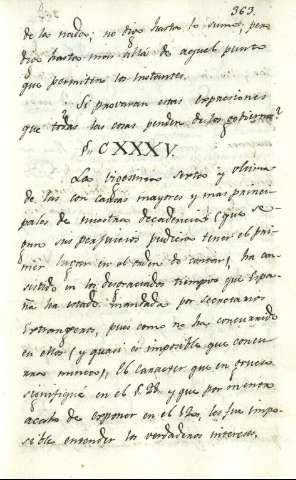 363.
de la nada; no digo hasta lo sumo, pero
digo hasta mas allá de aquel punto
que permitian los instantes.
¿Si provaràn estas expresiones
que todas las cosas penden de los gobiernos?
§. CXXXV.
La vigesima sexta y ultima
de las con causas mayores y mas princi-
pales de nuestra decadencia (que se-
gun sus perjuicios pudiera tener el pri-
mer lugar en el orden de contar) ha con-
sistido en los desgraciados tiempos que Espa-
ña ha estado mandada por secretarios
extrangeros, pues como no ha concurrido
en ellos (y quasi es imposible que concu-
rra nunca), el caracter que en grueso
signifiqué en el §. 28 y que por menor
acabo de exponer en el 120, les fue impo-
sible entender los verdaderos intereses.